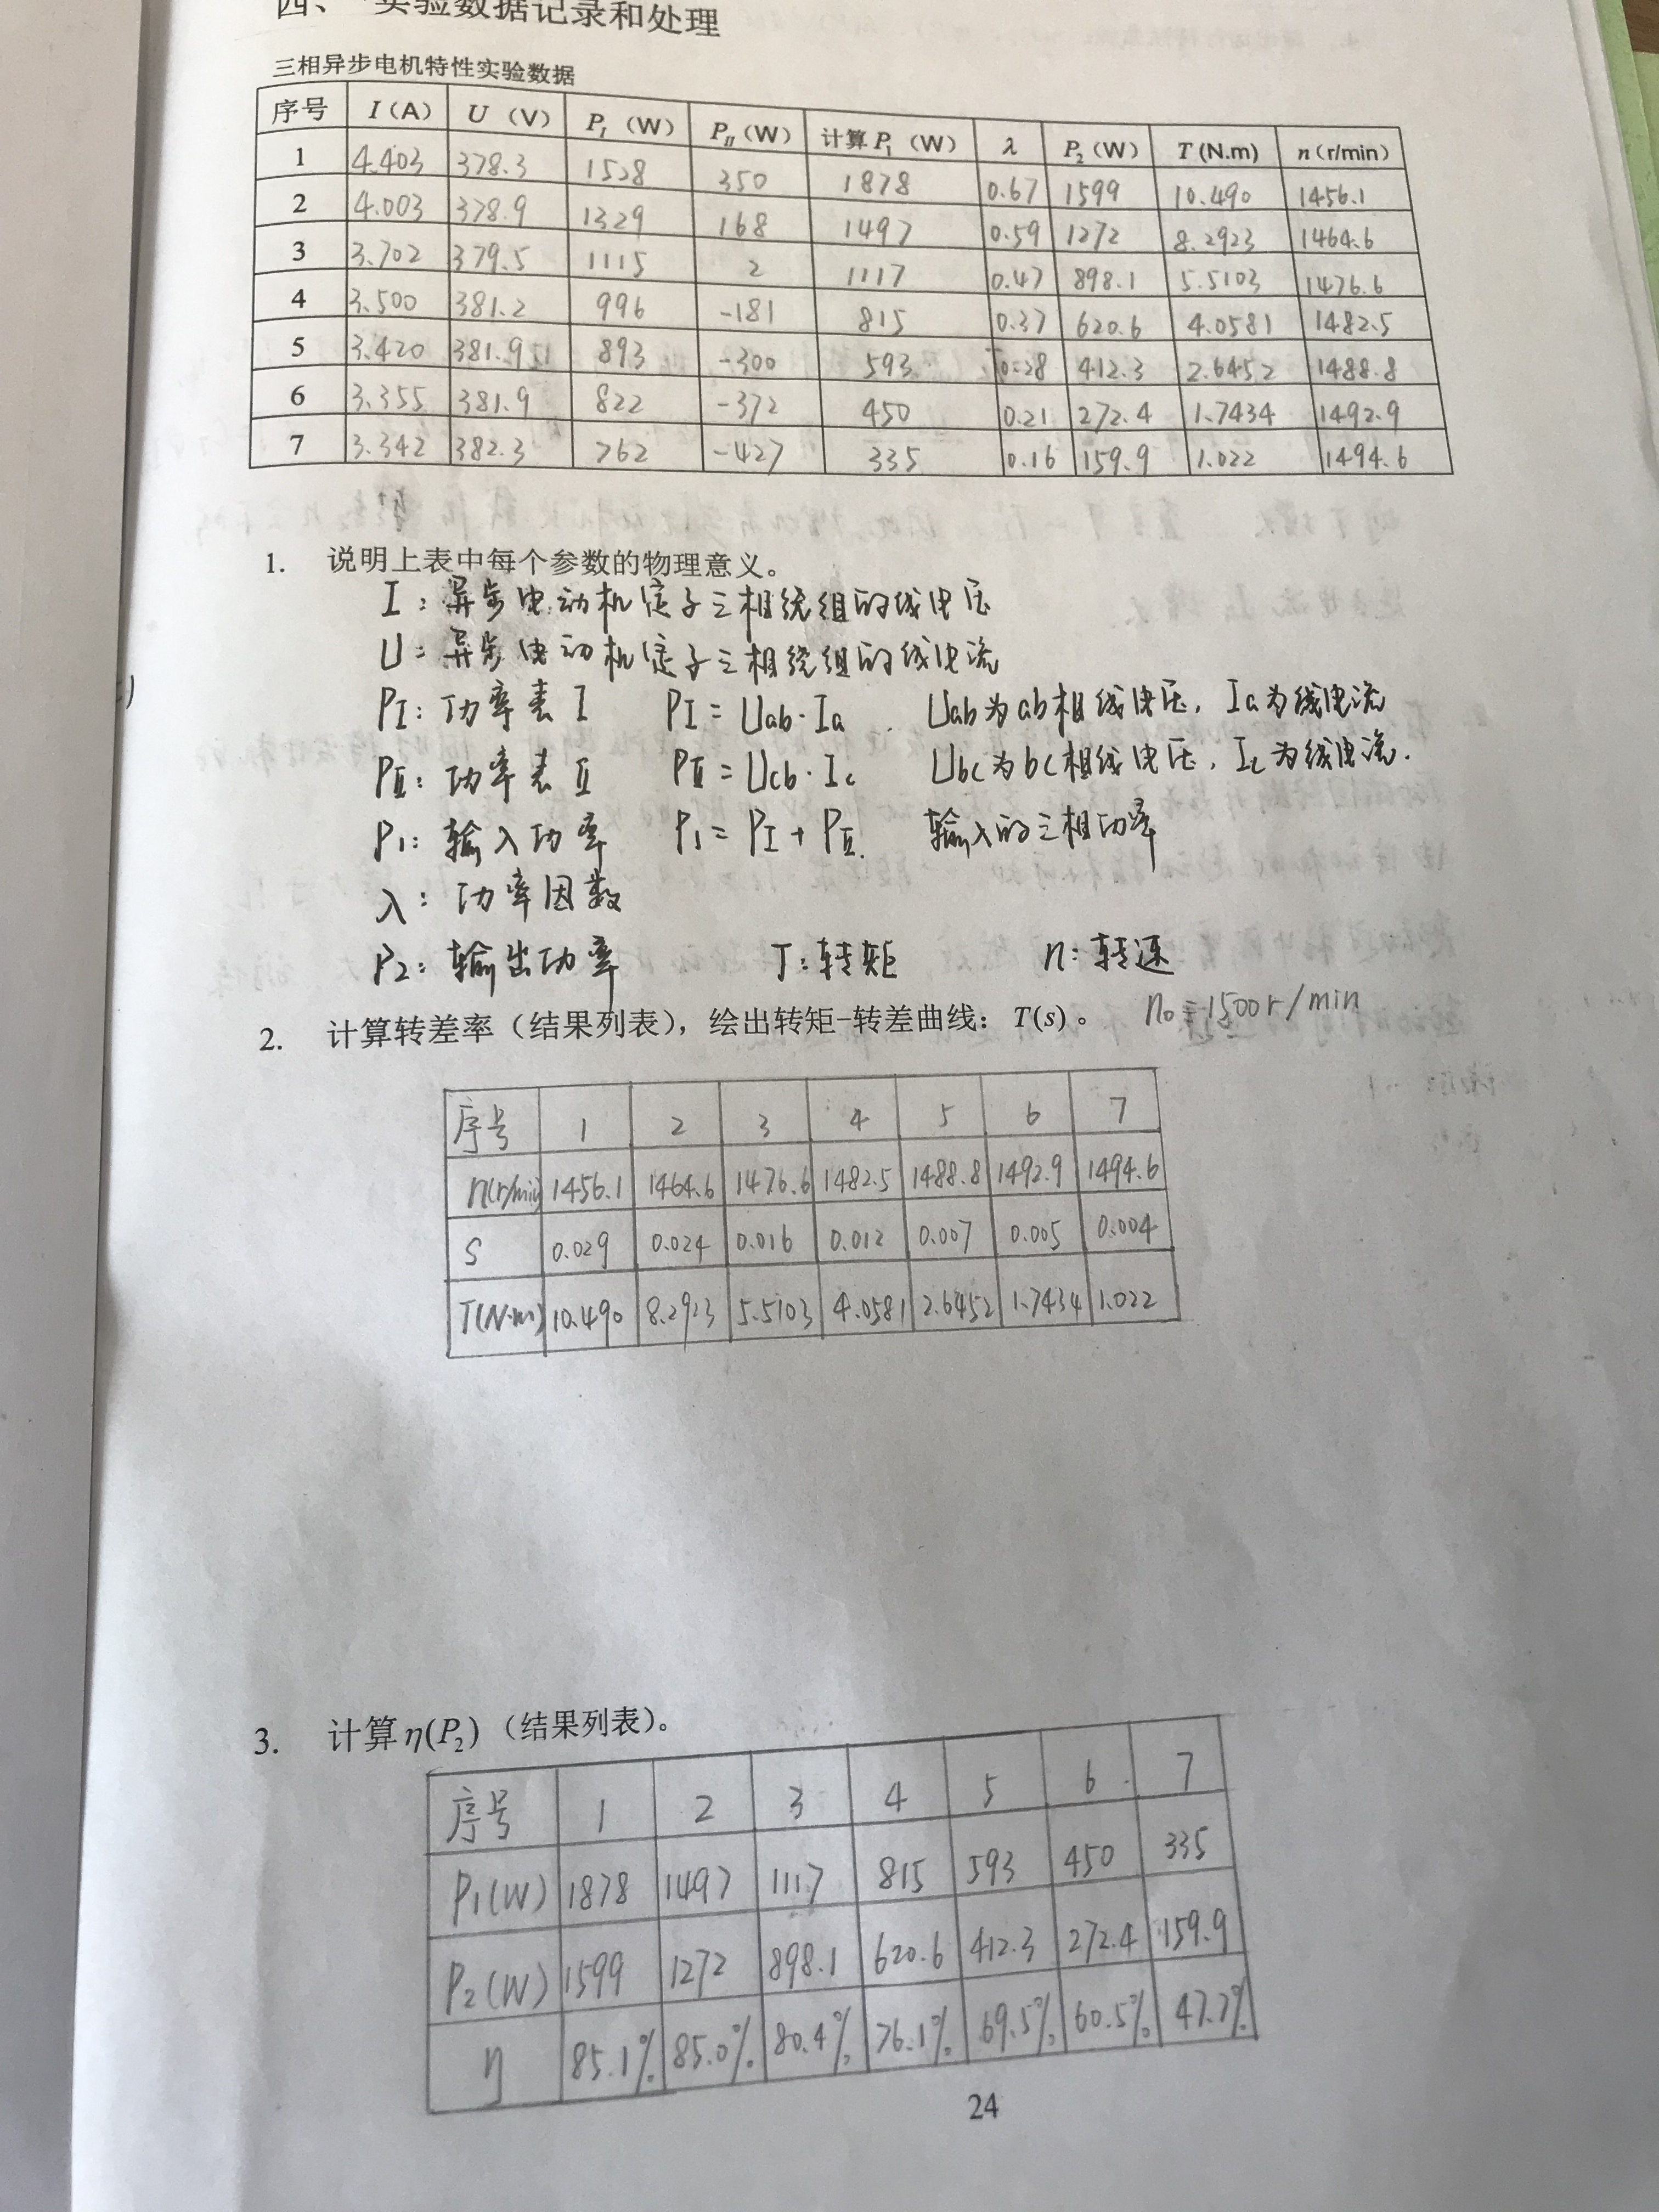 四、实验数据记录和处理
三相异步电机特性实验数据
序号 I（A） U （V） P_I （W） P_II（W） 计算 P₁ （W） λ P₂（W） T (N.m) n（r/min）
1 4.403 378.3 1528 350 1878 0.67 1599 10.490 1456.1
2 4.003 378.9 1329 168 1497 0.59 1272 8.2923 1464.6
3 3.702 379.5 1115 2 1117 0.47 898.1 5.5103 1476.6
4 3.500 381.2 996 -181 815 0.37 620.6 4.0581 1482.5
5 3.420 381.9 893 -300 593 0.28 412.3 2.6452 1488.8
6 3.355 381.9 822 -372 450 0.21 272.4 1.7434 1492.9
7 3.342 382.3 762 -427 335 0.16 159.9 1.022 1494.6
1. 说明上表中每个参数的物理意义。
I：异步电动机定子三相绕组的线电压
U：异步电动机定子三相绕组的线电流
PI：功率表 I PI = Uab·Ia Uab为ab相线电压，Ia为线电流
PII：功率表 II PII = Ucb·Ic Ubc为bc相线电压，Ic为线电流.
P1：输入功率 P1 = PI + PII. 输入的三相功率
λ：功率因数
P2：输出功率 T：转矩 n：转速
2. 计算转差率（结果列表），绘出转矩-转差曲线：T(s)。 n0=1500r/min
序号 1 2 3 4 5 6 7
n(r/min) 1456.1 1464.6 1476.6 1482.5 1488.8 1492.9 1494.6
S 0.029 0.024 0.016 0.012 0.007 0.005 0.004
T(N·m) 10.490 8.2923 5.5103 4.0581 2.6452 1.7434 1.022
3. 计算η(P₂)（结果列表）。
序号 1 2 3 4 5 6 7
P1(W) 1878 1497 1117 815 593 450 335
P2(W) 1599 1272 898.1 620.6 412.3 272.4 159.9
η 85.1% 85.0% 80.4% 76.1% 69.5% 60.5% 47.7%
24